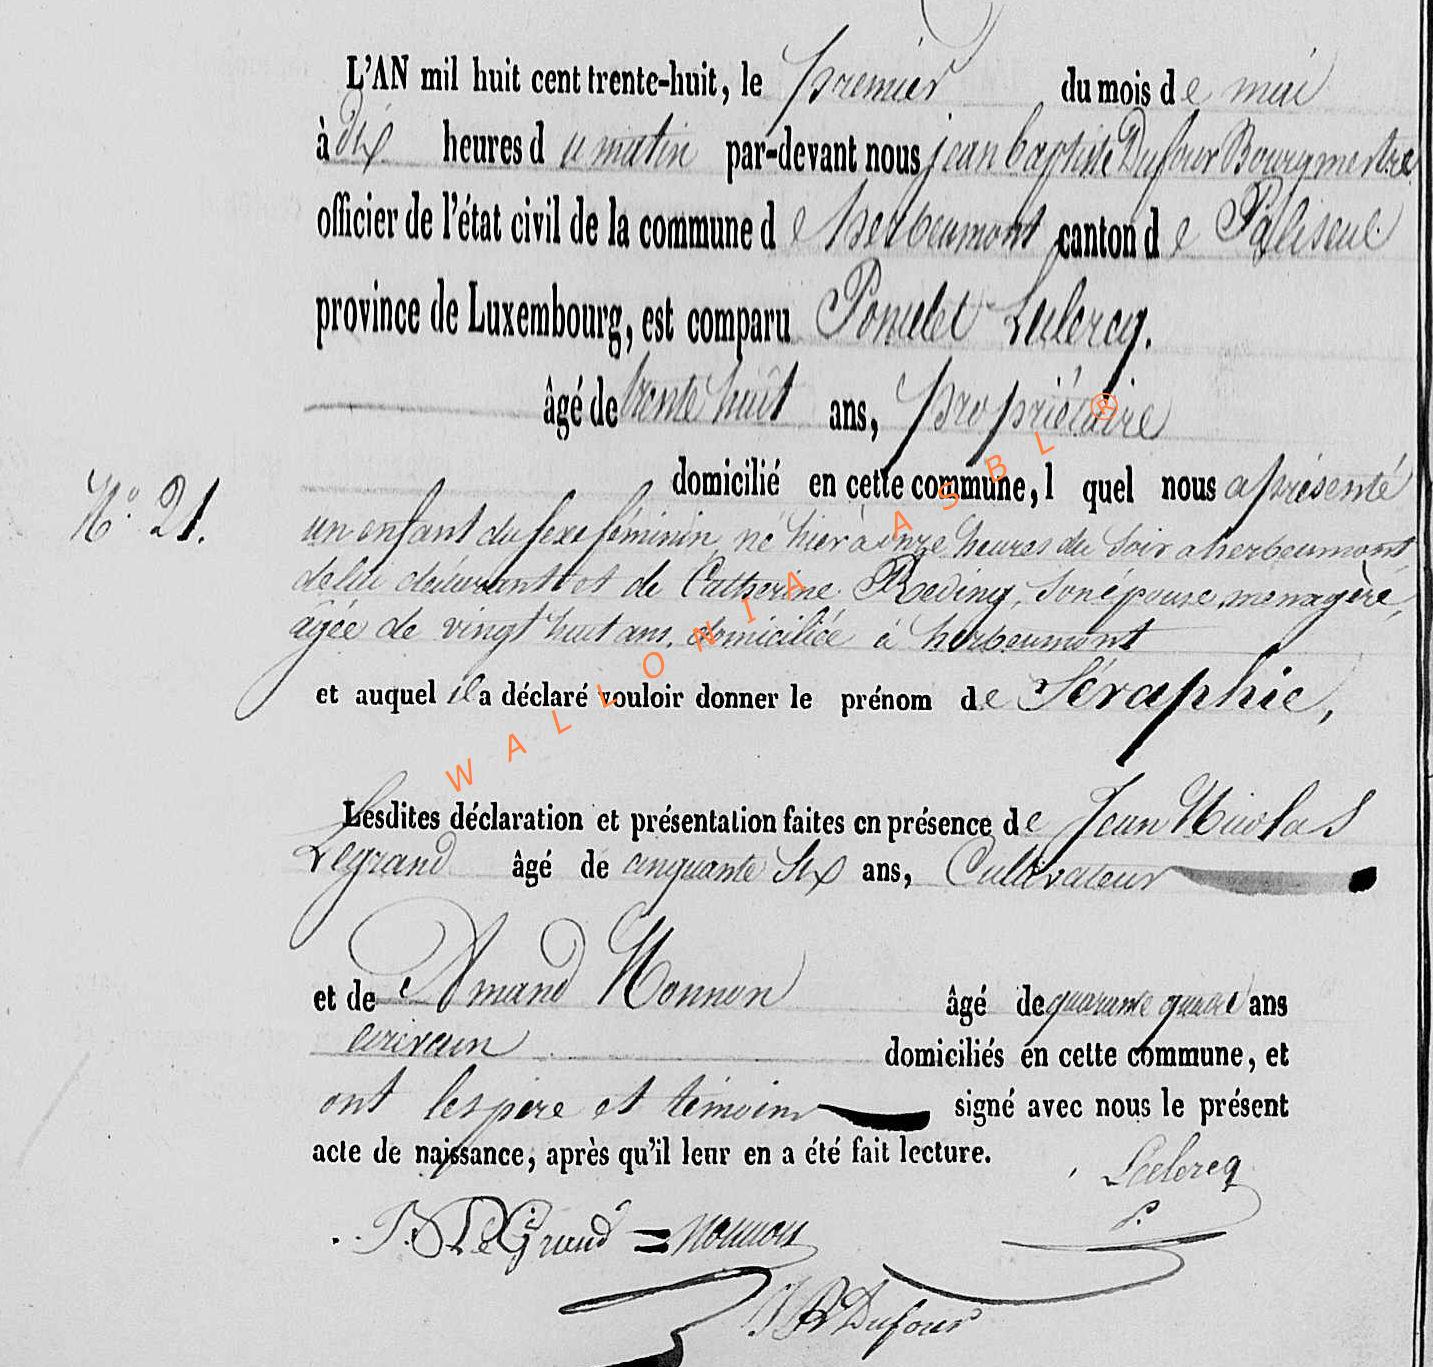 L'AN mil huit cent trente-huit, le premier du mois de mai
à dix heures du matin par-devant nous jean baptiste Dufour Bourgmestre
officier de l'état civil de la commune de herbeumont canton de Paliseul
province de Luxembourg, est comparu Poncelet Leclercq.
âgé de trente huit ans, propriétaire
domicilié en cette commune, l quel nous a présenté
N.º 21.
un enfant du sexe féminin né hier à onze heures du soir a herbeumont
de lui déclarant et de Catherine Reding, son épouse menagère,
âgée de vingt huit ans, domiciliée à herbeumont
et auquel il a déclaré vouloir donner le prénom de Séraphie,
Lesdites déclaration et présentation faites en présence de Jean Nicolas
Legrand âgé de cinquante six ans, Cultivateur
et de Amand Monnon âgé de quarante quatre ans
écrivain domiciliés en cette commune, et
ont les père et témoins signé avec nous le présent
acte de naissance, après qu'il leur en a été fait lecture.
Leclercq
P.
LeGrand = Monnon
JB Dufour
WALLONIA ASBL ®